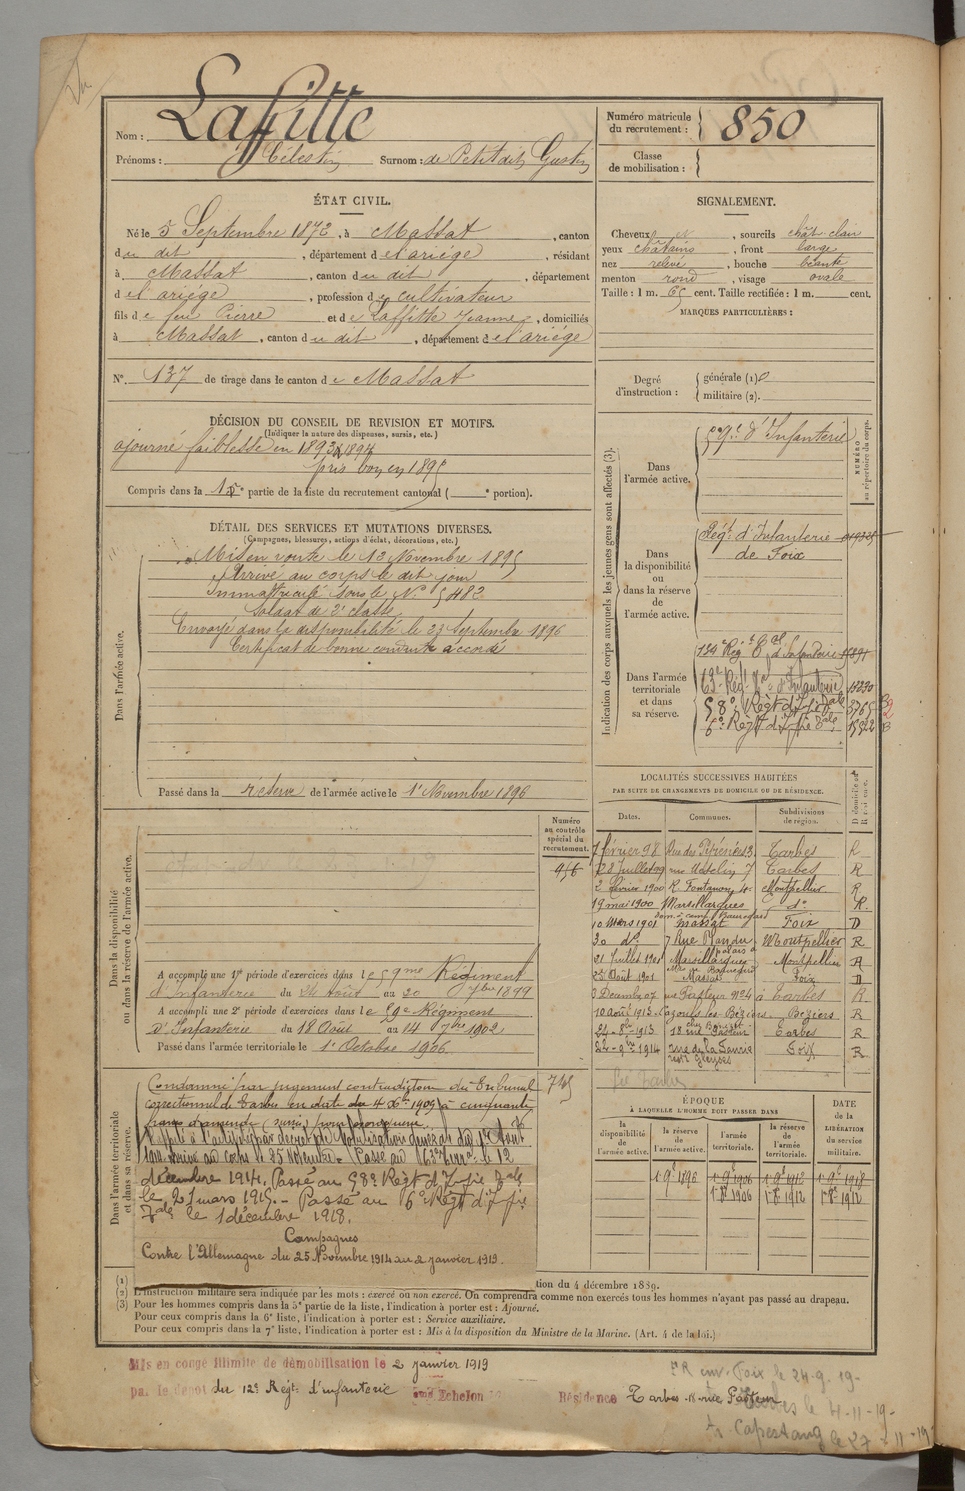 Nom : Laffitte
Prénoms : Célestin Surnom : de Petit dit Gustin
Numéro matricule du recrutement : 850
Classe de mobilisation :
ÉTAT CIVIL.
Né le 5 Septembre 1872, à Massat, canton
du dit, département de l'ariége, résidant
à Massat, canton du dit, département
d el'ariége, profession de cultivateur
fils de feu Pierre et de Laffitte Jeanne, domiciliés
à Massat, canton du dit, département de l'ariége
N°. 137 de tirage dans le canton de Massat
SIGNALEMENT.
Cheveux, sourcils chât clair
yeux châtains, front large
nez relevé, bouche
menton rond, visage ovale
Taille : 1 m. 65 cent. Taille rectifiée : 1 m. cent.
MARQUES PARTICULIÈRES :
Degré d'instruction : générale (1) 0
militaire (2).
DÉCISION DU CONSEIL DE REVISION ET MOTIFS.
(Indiquer la nature des dispenses, sursis, etc.)
ajourné faiblesse en 1893 & 1894
pris bon en 1895
Compris dans la 1e partie de la liste du recrutement cantonal ( e portion).
DÉTAIL DES SERVICES ET MUTATIONS DIVERSES.
(Campagnes, blessures, actions d'éclat, décorations, etc.)
Dans l'armée active.
Mis en route le 13 Novembre 1895
Arrivé au corps le dit jour
Immatriculé sous le N° 5482
Soldat de 2e classe
Envoyé dans la disponibilité le 23 Septembre 1896
Certificat de bonne conduite accordé
Passé dans la réserve de l'armée active le 1er Novembre 1896
Indication des corps auxquels les jeunes gens sont affectés (3).
NUMÉRO au répertoire du corps.
Dans l'armée active.
59e d'Infanterie
Dans la disponibilité ou dans la réserve de l'armée active.
Régt d'Infanterie
de Foix
Dans l'armée territoriale et dans sa réserve.
134e Régt Eal d'Infanterie
63e Régt d'Infanterie
58e Régt d'Ifie 3765
6e Régt d'Ifie
Dans la disponibilité ou dans la réserve de l'armée active.
Numéro au contrôle spécial du recrutement.
A accompli une 1re période d'exercices dans le 59me Régiment
d'Infanterie du 24 Août au 20 7bre 1899
A accompli une 2e période d'exercices dans le 59e Régiment
d'Infanterie du 18 Août au 14 7bre 1902
Passé dans l'armée territoriale le 1er Octobre 1906
LOCALITÉS SUCCESSIVES HABITÉES
PAR SUITE DE CHANGEMENTS DE DOMICILE OU DE RÉSIDENCE.
Dates. Communes. Subdivisions de région. D domicile ou R résidence.
7 février 98 Rue des Pyrénées 3 Tarbes R
28 Juillet 99 rue 7 Tarbes R
2 février 1900 R. Fontanon Montpellier R
19 mai 1900 Marsillargues do R
10 Mars 1901 Massat Foix D
30 do 7 Rue Montpellier R
21 Juillet 1901 Marsillargues Montpellier R
25 Août 1901 Massat Foix D
8 Décembre 07 rue Pasteur N°4 à Tarbes R
10 août 1913 Cazouls-les-Béziers Béziers R
1913 18 rue Pasteur Tarbes R
22-9bre 1914 Foix R
Dans l'armée territoriale et dans sa réserve.
Condamné par jugement contradictoire du Tribunal 745
correctionnel de Tarbes en date du 4 Xbre 1909 à cinquante
francs d'amende (sursis)
Rappelé à l'activité par décret de Mobilisation Générale du 1er Août
1914 Arrivé au corps le 25 Novembre. Passé au 63e Terral le 12
décembre 1914. Passé au 58e Régt d'Ifie
le 21 mars 1915. - Passé au 6e Régt d'Ifie
le 1 décembre 1918.
Campagnes
Contre l'Allemagne du 25 Novembre 1914 au 2 janvier 1919.
ÉPOQUE
À LAQUELLE L'HOMME DOIT PASSER DANS
DATE de la LIBÉRATION du service militaire.
la disponibilité de l'armée active. la réserve de l'armée active. l'armée territoriale. la réserve de l'armée territoriale.
1er 9bre 1896 1906 1912 1918
1er 8bre 1906 1er 8bre 1912 1er 8bre 1912
(1) tion du 4 décembre 1889.
(2) L'instruction militaire sera indiquée par les mots : exercé ou non exercé. On comprendra comme non exercés tous les hommes n'ayant pas passé au drapeau.
(3) Pour les hommes compris dans la 5e partie de la liste, l'indication à porter est : Ajourné.
Pour ceux compris dans la 6e liste, l'indication à porter est : Service auxiliaire.
Pour ceux compris dans la 7e liste, l'indication à porter est : Mis à la disposition du Ministre de la Marine. (Art. 4 de la loi.)
Mis en congé illimité de démobilisation le 2 janvier 1919
par le dépôt du 12e Régt d'infanterie Échelon
Résidence Tarbes 18 rue Pasteur
env. Foix le 24-9-19-
Tarbes le 4-11-19-
Capestang le 27-11-19